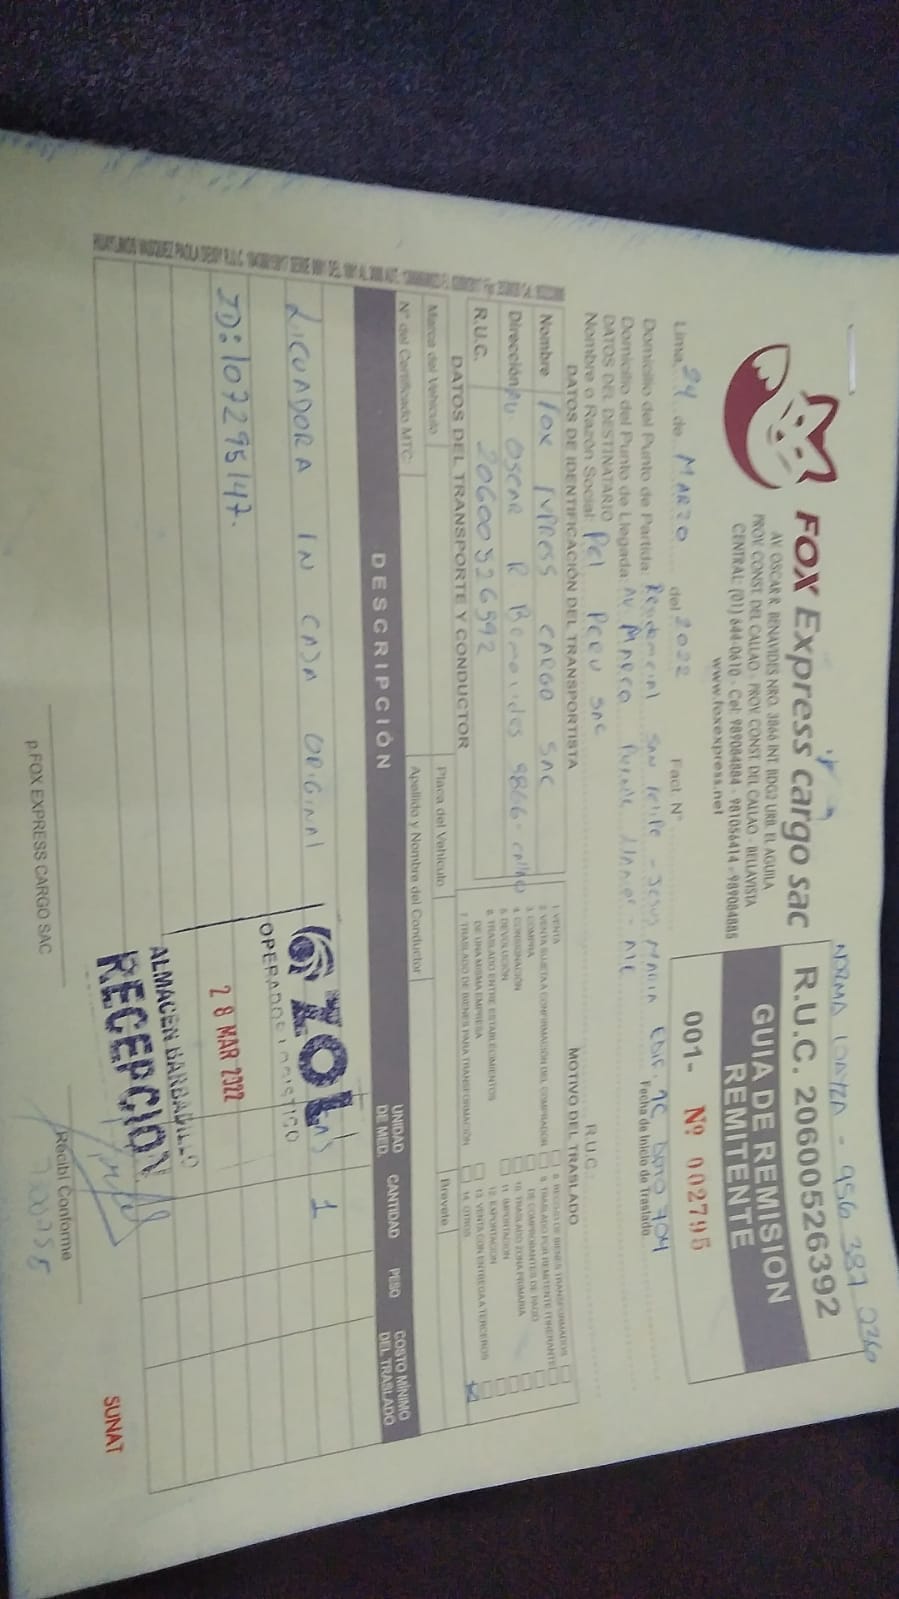 NORMA
FOX Express cargo sac
AV. OSCAR R. BENAVIDES NRO. 3866 INT. BDG2 URB. EL AGUILA
PROV. CONST. DEL CALLAO - PROV. CONST. DEL CALLAO - BELLAVISTA
CENTRAL: (01) 644-0610 - Cel: 989084884 - 981056414 - 989084885
www.foxexpress.net
R.U.C. 20600526392
GUIA DE REMISION
REMITENTE
001- Nº 002795
Lima, 24 de MARZO del 2022 Fact. N°
Fecha de Inicio de Traslado
Domicilio del Punto de Partida: Residencial San Felipe - Jesus Maria Edif.
Domicilio del Punto de Llegada: Av. Marco
DATOS DEL DESTINATARIO
Nombre o Razón Social: Pci Peru SAC R.U.C.
DATOS DE IDENTIFICACIÓN DEL TRANSPORTISTA
Nombre Fox Express cargo SAC
Dirección Av. Oscar R Benavides 3866 - Callao
R.U.C. 20600526392
MOTIVO DEL TRASLADO
1. VENTA
2. VENTA SUJETA A CONFIRMACIÓN DEL COMPRADOR
3. COMPRA
4. CONSIGNACIÓN
5. DEVOLUCIÓN
6. TRASLADO ENTRE ESTABLECIMIENTOS
DE UNA MISMA EMPRESA
7. TRASLADO DE BIENES PARA TRANSFORMACIÓN
8. RECOJO DE BIENES TRANSFORMADOS
9. TRASLADO POR REMITENTE ITINERANTE
DE COMPROBANTES DE PAGO
10. TRASLADO ZONA PRIMARIA
11. IMPORTACIÓN
12. EXPORTACIÓN
13. VENTA CON ENTREGA A TERCEROS
14. OTROS
DATOS DEL TRANSPORTE Y CONDUCTOR
Marca del Vehículo Placa del Vehículo
N° del Certificado MTC: Apellido y Nombre del Conductor Brevete
DESCRIPCIÓN UNIDAD DE MED. CANTIDAD PESO COSTO MÍNIMO DEL TRASLADO
LICUADORA IN CAJA ORIGINAL 1
JD: 107295147.
ZOL
OPERADOR LOGISTICO
28 MAR 2022
ALMACEN BARBADILLO
RECEPCION
p.FOX EXPRESS CARGO SAC
Recibí Conforme
SUNAT